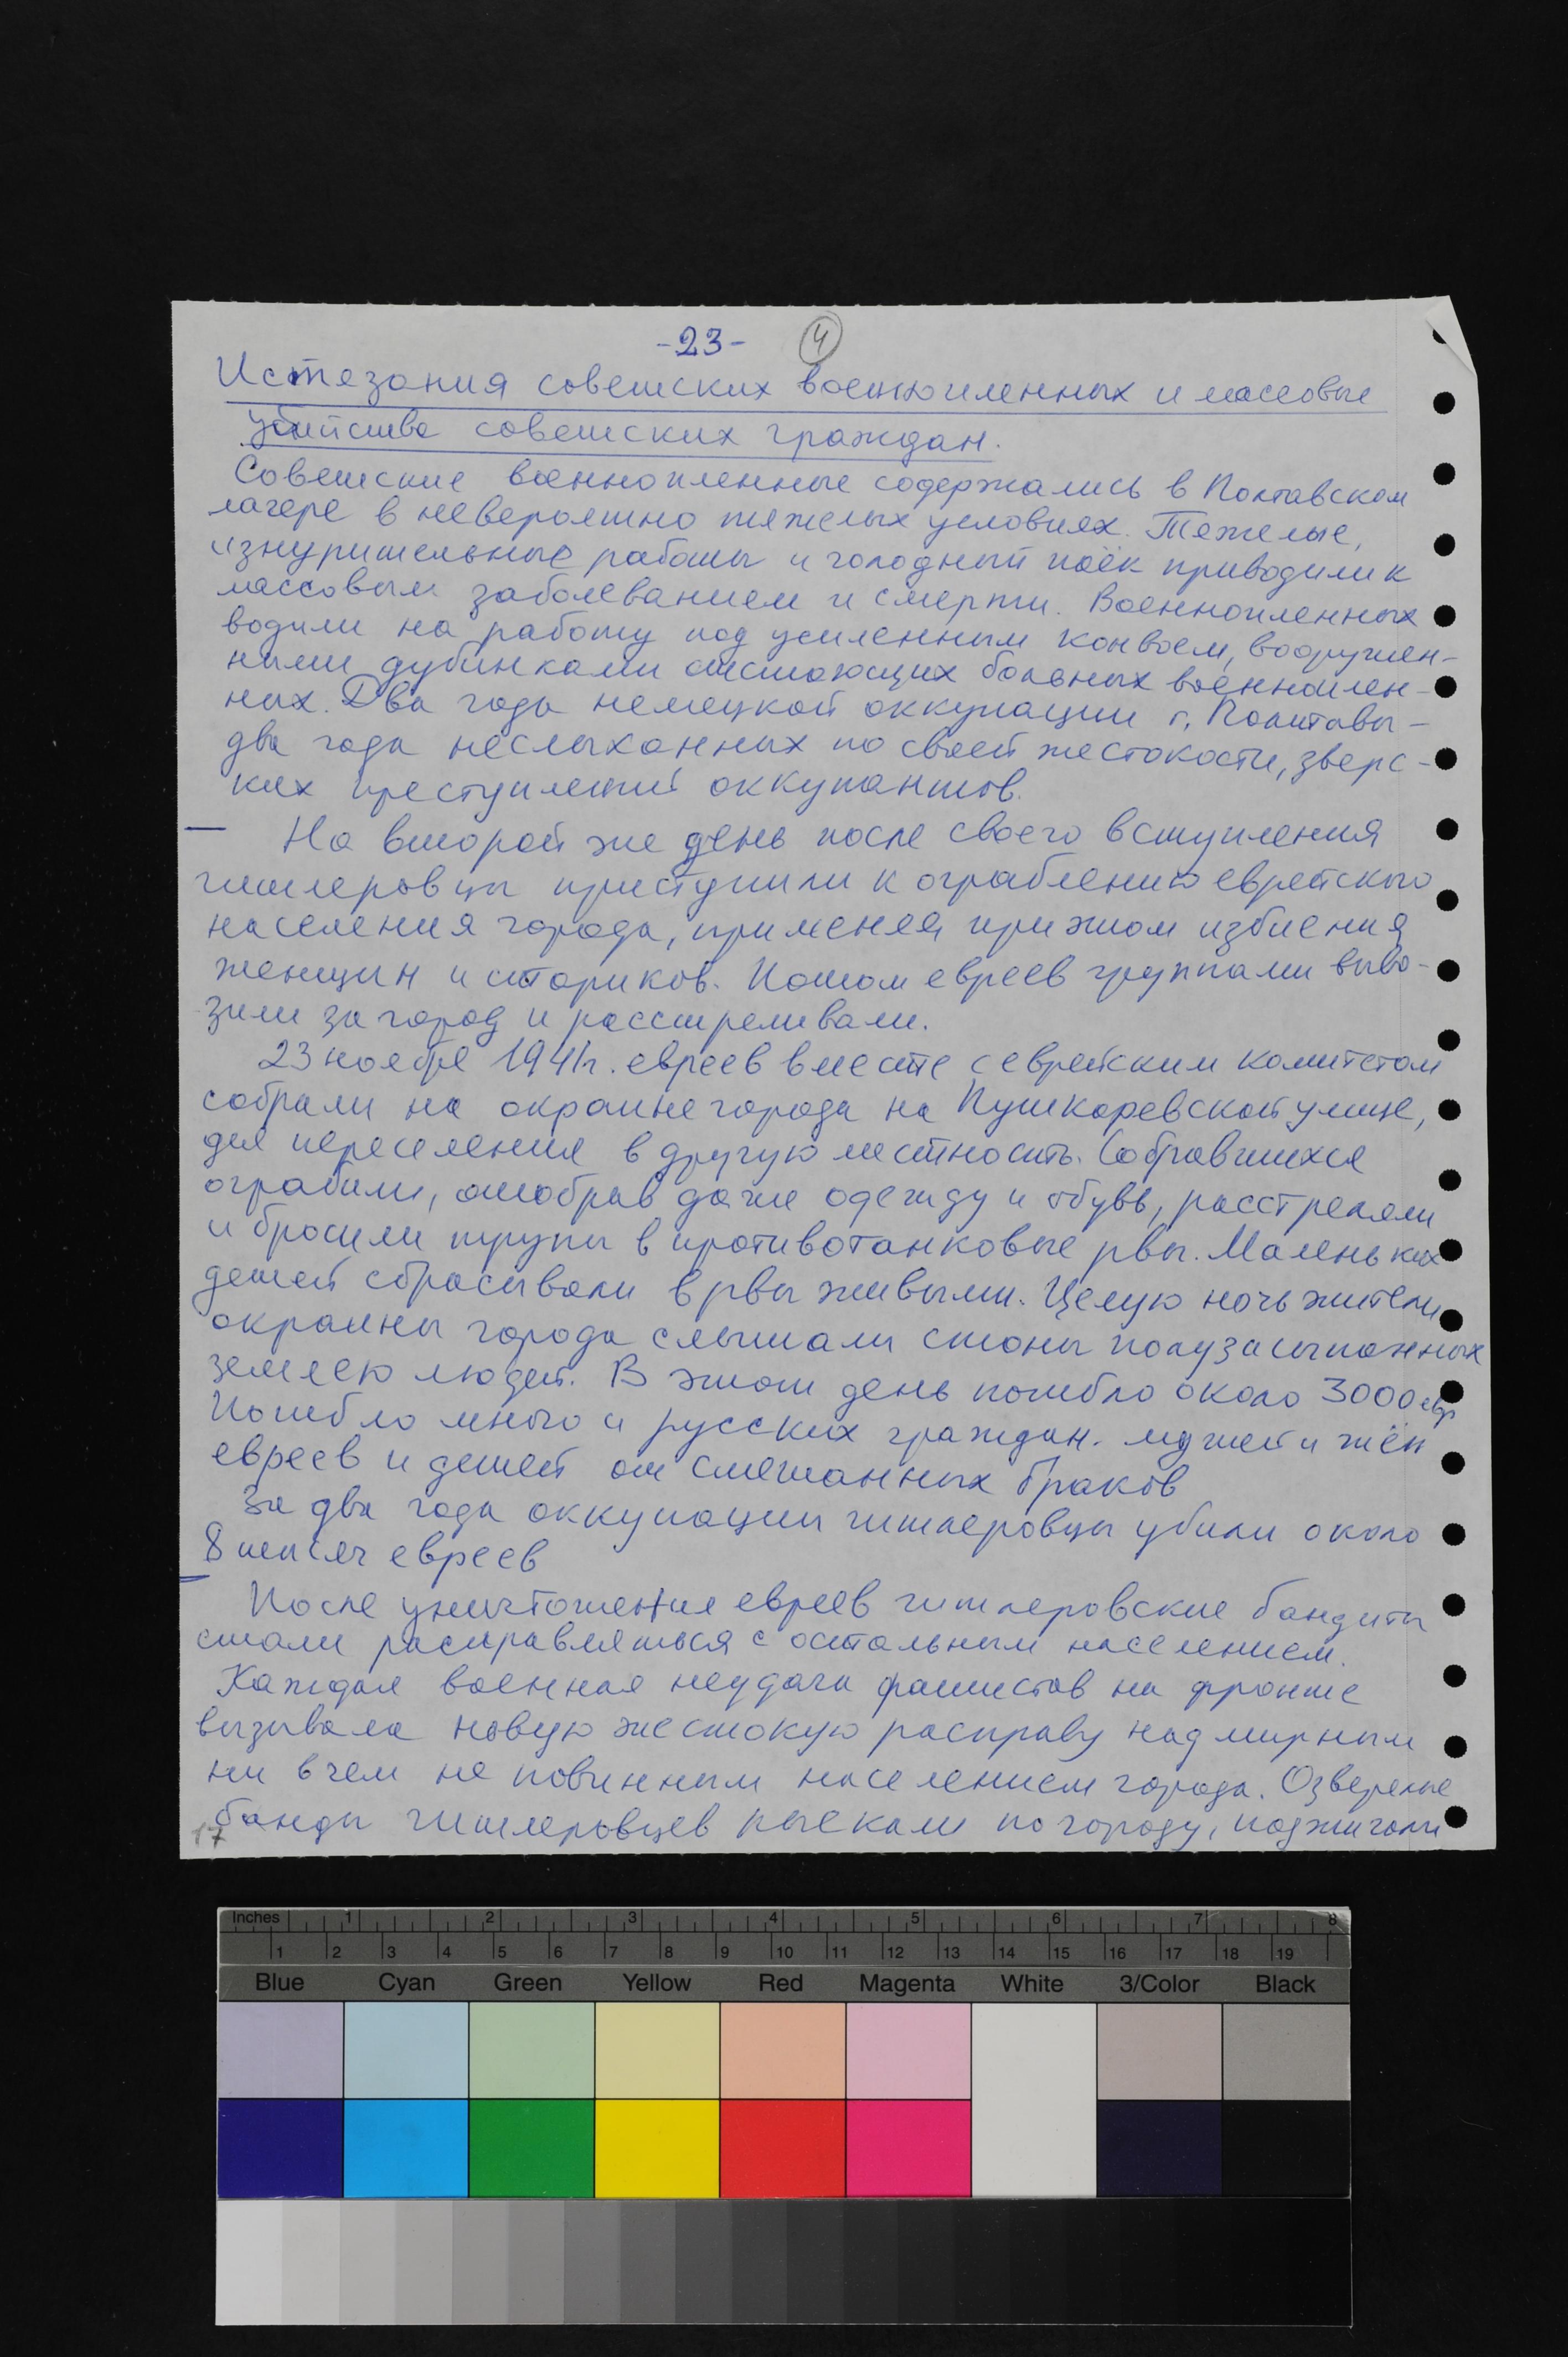 -23- 4
Истезания советских военнопленных и массовые
убийства советских граждан.
Советские военнопленные содержались в Полтавском
лагере в невероятно тяжелых условиях. Тяжелые,
изнурительные работы и голодный паёк приводили к
массовым заболеванием и смерти. Военнопленных
водили на работу под усиленным конвоем, вооружен-
ными дубинками отстающих больных военноплен-
ных. Два года немецкой оккупации г. Полтавы -
два года неслыханных по своей жестокости, зверс-
ких преступлений оккупантов.
На второй же день после своего вступления
гитлеровцы приступили к ограблению еврейского
населения города, применяя при этом избиения
женщин и стариков. Потом евреев группами выво-
зили за город и расстреливали.
23 ноября 1941г. евреев вместе с еврейским комитетом
собрали на окраине города на Пушкаревской улице,
для переселения в другую местность. Собравшихся
ограбили, отобрав даже одежду и обувь, расстреляли
и бросили трупы в противотанковые рвы. Маленьких
детей сбрасывали в рвы живыми. Целую ночь жители
окраины города слышали стоны полузасыпанных
землею людей. В этот день погибло около 3000 евр
Погибло много и русских граждан. мужей и жён
евреев и детей от смешанных браков
За два года оккупации гитлеровцы убили около
8 тысяч евреев
После уничтожения евреев гитлеровские бандиты
стали расправляться с остальным населением.
Каждая военная неудача фашистов на фронте
вызывала новую жестокую расправу над мирным
ни в чем не повинным населением города. Озверелые
банды гитлеровцев рыскали по городу, поджигали
17
Inches 1 2 3 4 5 6 7 8
1 2 3 4 5 6 7 8 9 10 11 12 13 14 15 16 17 18 19
Blue Cyan Green Yellow Red Magenta White 3/Color Black